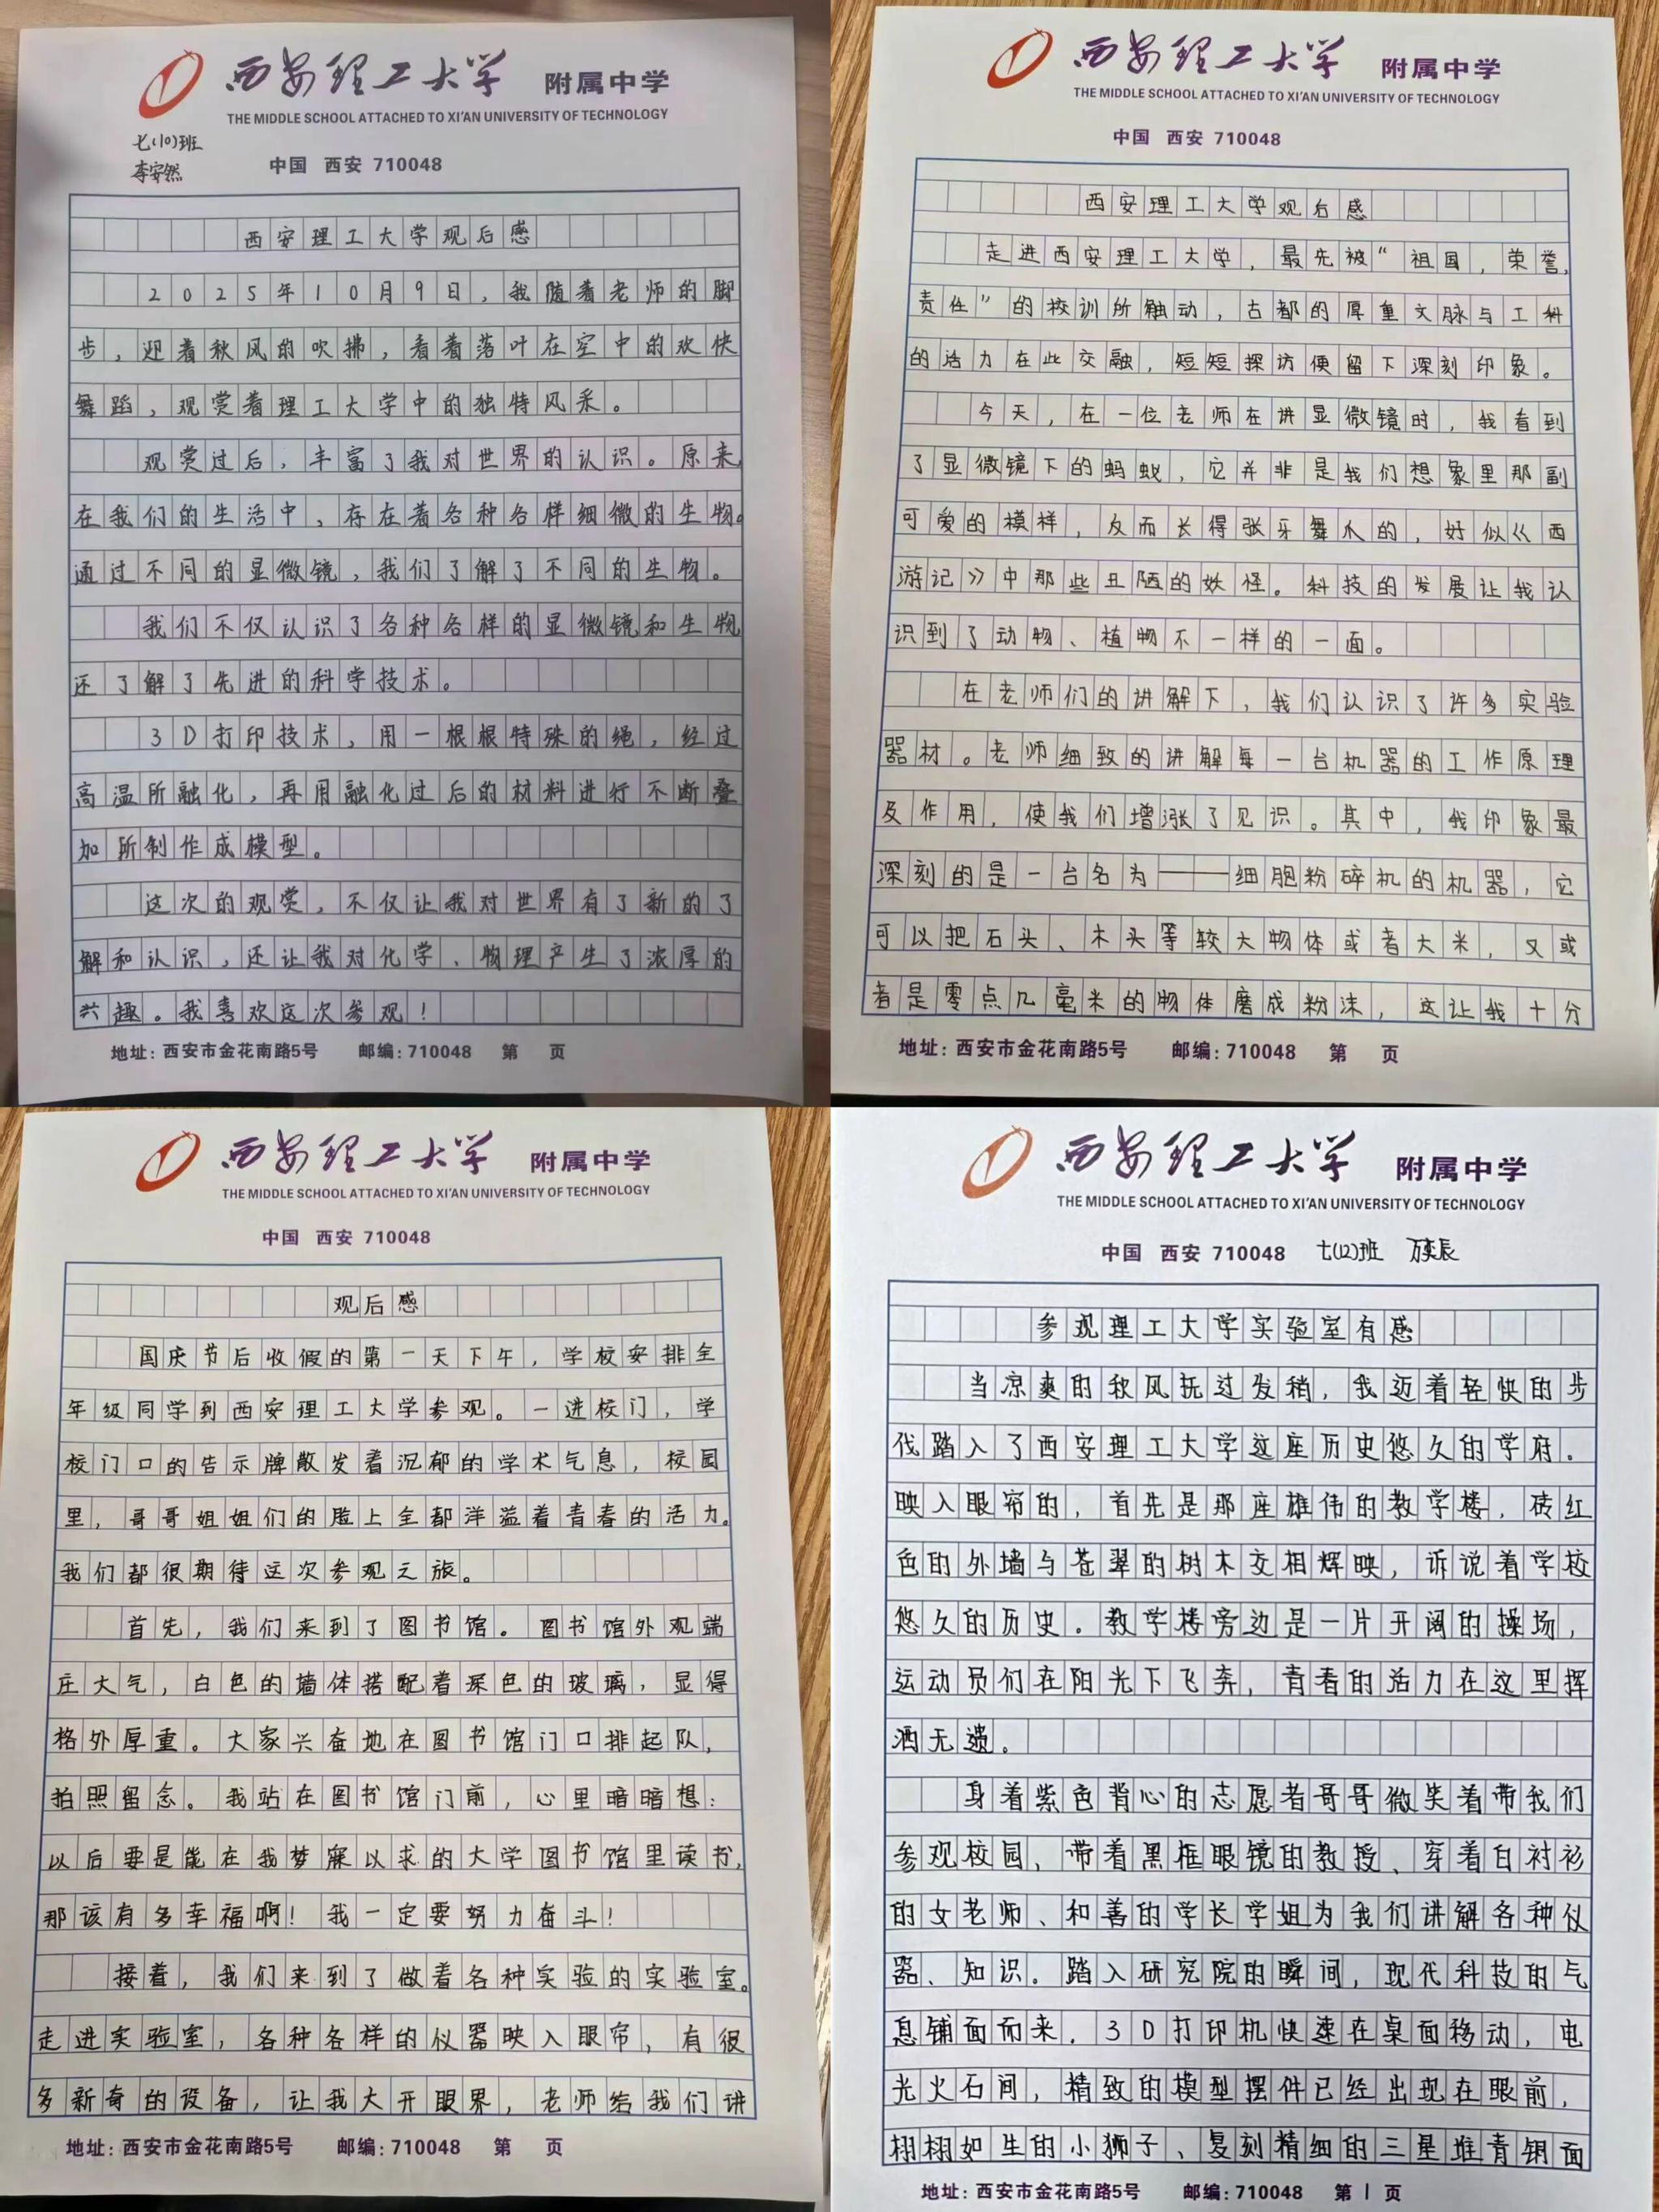 西安理工大学 附属中学
THE MIDDLE SCHOOL ATTACHED TO XI'AN UNIVERSITY OF TECHNOLOGY
七(10)班
李安然
中国 西安 710048
西安理工大学观后感
2025年10月9日,我随着老师的脚
步,迎着秋风的吹拂,看着落叶在空中的欢快
舞蹈,观赏着理工大学中的独特风采。
观赏过后,丰富了我对世界的认识。原来,
在我们的生活中,存在着各种各样细微的生物。
通过不同的显微镜,我们了解了不同的生物。
我们不仅认识了各种各样的显微镜和生物
还了解了先进的科学技术。
3D打印技术,用一根根特殊的绳,经过
高温所融化,再用融化过后的材料进行不断叠
加所制作成模型。
这次的观赏,不仅让我对世界有了新的了
解和认识,还让我对化学、物理产生了浓厚的
兴趣。我喜欢这次参观!
地址:西安市金花南路5号 邮编:710048 第 页
西安理工大学 附属中学
THE MIDDLE SCHOOL ATTACHED TO XI'AN UNIVERSITY OF TECHNOLOGY
中国 西安 710048
西安理工大学观后感
走进西安理工大学,最先被“祖国,荣誉,
责任”的校训所触动,古都的厚重文脉与工科
的活力在此交融,短短探访便留下深刻印象。
今天,在一位老师在讲显微镜时,我看到
了显微镜下的蚂蚁,它并非是我们想象里那副
可爱的模样,反而长得张牙舞爪的,好似《西
游记》中那些丑陋的妖怪。科技的发展让我认
识到了动物、植物不一样的一面。
在老师们的讲解下,我们认识了许多实验
器材。老师细致的讲解每一台机器的工作原理
及作用,使我们增涨了见识。其中,我印象最
深刻的是一台名为——细胞粉碎机的机器,它
可以把石头、木头等较大物体或者大米,又或
者是零点几毫米的物体磨成粉沫,这让我十分
地址:西安市金花南路5号 邮编:710048 第 页
西安理工大学 附属中学
THE MIDDLE SCHOOL ATTACHED TO XI'AN UNIVERSITY OF TECHNOLOGY
中国 西安 710048
观后感
国庆节后收假的第一天下午,学校安排全
年级同学到西安理工大学参观。一进校门,学
校门口的告示牌散发着沉郁的学术气息,校园
里,哥哥姐姐们的脸上全都洋溢着青春的活力。
我们都很期待这次参观之旅。
首先,我们来到了图书馆。图书馆外观端
庄大气,白色的墙体搭配着深色的玻璃,显得
格外厚重。大家兴奋地在图书馆门口排起队,
拍照留念。我站在图书馆门前,心里暗暗想:
以后要是能在我梦寐以求的大学图书馆里读书,
那该有多幸福啊!我一定要努力奋斗!
接着,我们来到了做着各种实验的实验室。
走进实验室,各种各样的仪器映入眼帘,有很
多新奇的设备,让我大开眼界,老师给我们讲
地址:西安市金花南路5号 邮编:710048 第 页
西安理工大学 附属中学
THE MIDDLE SCHOOL ATTACHED TO XI'AN UNIVERSITY OF TECHNOLOGY
中国 西安 710048 七(12)班 万奕辰
参观理工大学实验室有感
当凉爽的秋风抚过发稍,我迈着轻快的步
伐踏入了西安理工大学这座历史悠久的学府。
映入眼帘的,首先是那座雄伟的教学楼,砖红
色的外墙与苍翠的树木交相辉映,诉说着学校
悠久的历史。教学楼旁边是一片开阔的操场,
运动员们在阳光下飞奔,青春的活力在这里挥
洒无遗。
身着紫色背心的志愿者哥哥微笑着带我们
参观校园、带着黑框眼镜的教授、穿着白衬衫
的女老师、和善的学长学姐为我们讲解各种仪
器、知识。踏入研究院的瞬间,现代科技的气
息铺面而来。3D打印机快速在桌面移动,电
光火石间,精致的模型摆件已经出现在眼前,
栩栩如生的小狮子、复刻精细的三星堆青铜面
地址:西安市金花南路5号 邮编:710048 第 1 页